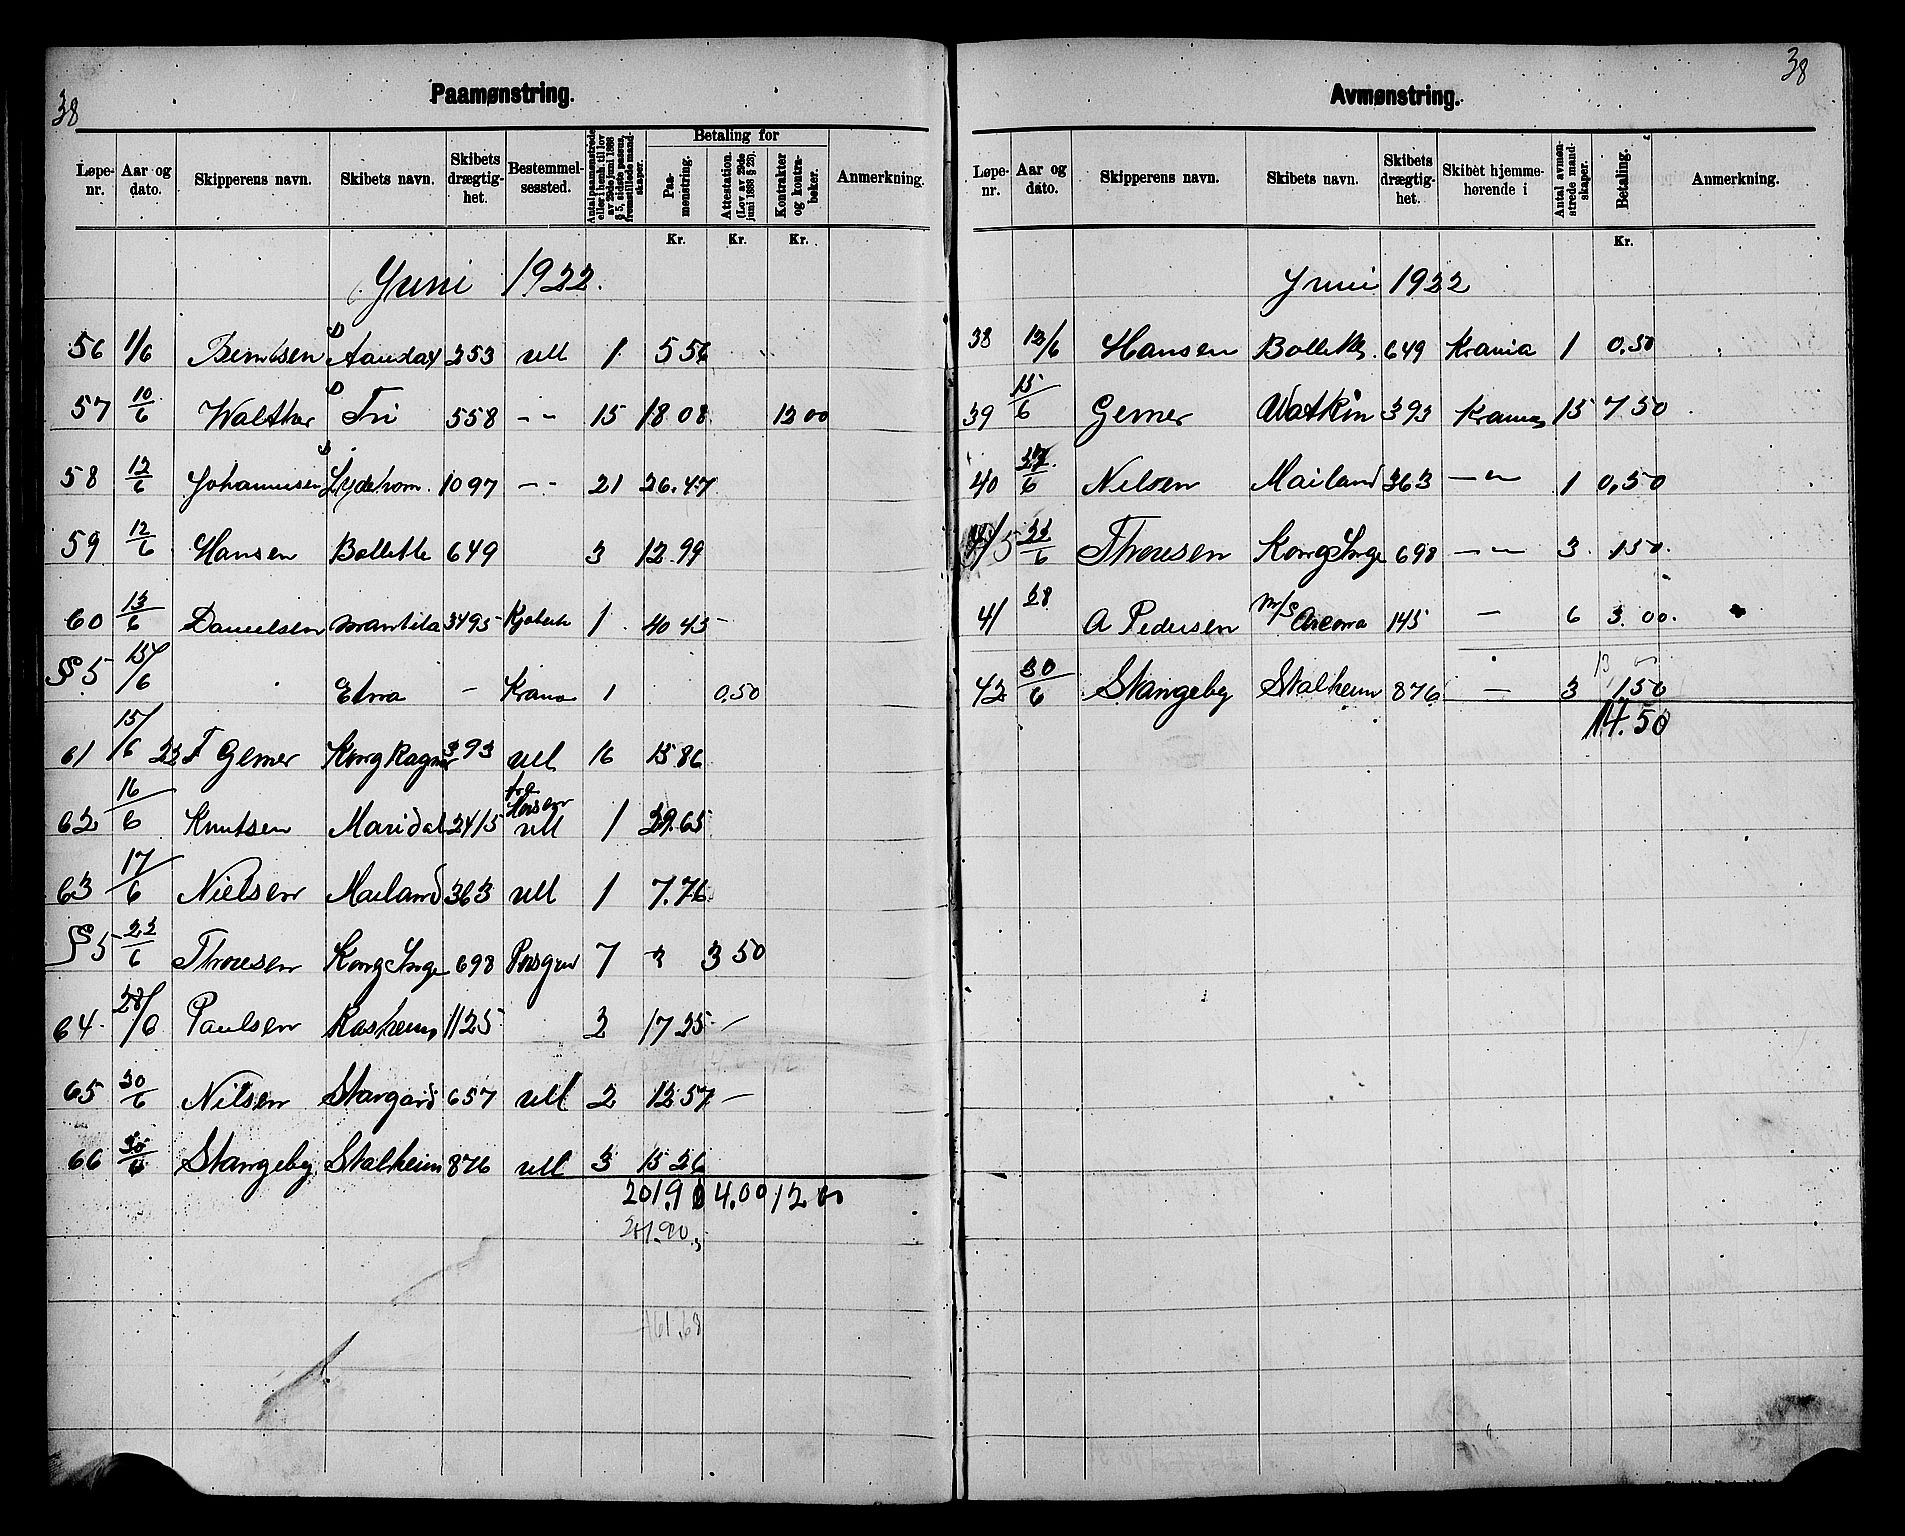 38
Paamønstring.
Løpe-nr. Aar og dato. Skipperens navn. Skibets navn. Skibets drægtig-het. Bestemmel-sessted. Antal paamønstrede eller i henh. til lov av 29de juni 1888 § 5, sidste passus, fremstillede mand-skaper. Betaling for Paa-mønstring. Attestation. (Lov av 29de juni 1888 § 23). Kontrakter og kontra-bøker. Anmerkning.
Kr. Kr. Kr.
Juni 1922.
56 1/6 Berntsen D Aaudax 253 udl 1 5 56
57 10/6 Walther D Fri 558 -"- 15 18 08 12 00
58 12/6 Johannesen D 1097 -"- 21 26.47
59 12/6 Hansen Bollette 649 3 12.99
60 13/6 Danielsen 3495 1 40 45
§ 5 15/6 Edna - Krania 1 0.50
61 15/6 22 F Gerner Kong Ragnar 393 udl 16 15 86
62 16/6 Knutsen Maridal 2415 fra udl 1 29.65
63 17/6 Nielsen Mailand 363 udl 1 7.76
§ 5 22/6 Thorsen Kong Inge 698 Porsgrun 7 3 50
64. 28/6 Paulsen Rasheim 1125 2 17 25 -
65 30/6 Nilsen Stangard 657 udl 2 12 57 -
66 30/6 Stangeby Stalheim 876 udl 3 15 26
201.90 4.00 12 00
38
Avmønstring.
Løpe-nr. Aar og dato. Skipperens navn. Skibets navn. Skibets drægtig-het. Skibet hjemme-hørende i Antal avmøn-strede mand-skaper. Betaling. Anmerkning.
Kr.
Juni 1922
38 12/6 Hansen Bollette 649 Krania 1 0.50
39 15/6 Gerner 393 Krania 15 7 50
40 17/6 Nilsen Mailand 363 -"- 1 0,50
§ 5 22/6 Thorsen Kong Inge 698 -"- 3. 1 50.
41 28 A Pedersen M/S 145 - 6 3.00.
42 30/6 Stangeby Stalheim 876 - 3 1 50
14.50